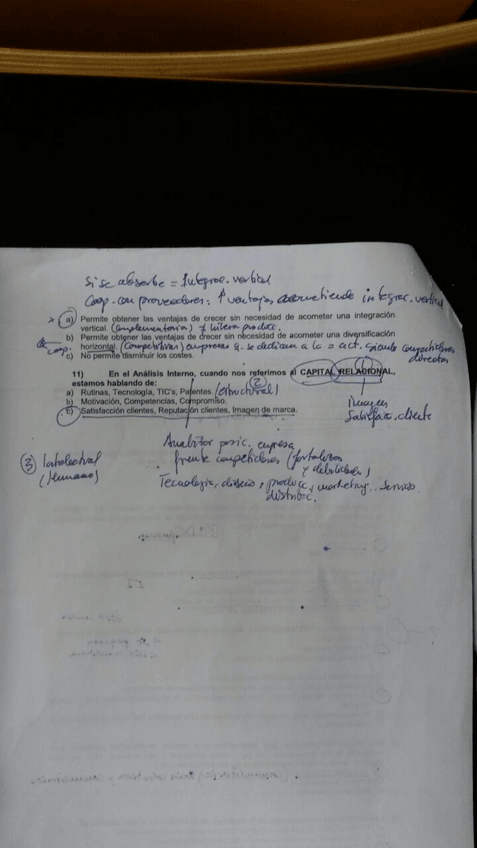 Si se absorbe = Integrac. vertical
Coop. con proveedores: ↑ ventajas acometiendo integrac. vertical
a) Permite obtener las ventajas de crecer sin necesidad de acometer una integración
vertical. (complementaria) ≠ línea produc.
b) Permite obtener las ventajas de crecer sin necesidad de acometer una diversificación
horizontal. (Competitivas) empresas q. se dedican a la = act. siendo competidores directos
coop.
c) No permite disminuir los costes.
11) En el Análisis Interno, cuando nos referimos al CAPITAL RELACIONAL,
estamos hablando de:
a) Rutinas, Tecnología, TIC's, Patentes. (estructural)
b) Motivación, Competencias, Compromiso.
c) Satisfacción clientes, Reputación clientes, Imagen de marca.
(1)
(2)
Imagen
Satisfacc. cliente
(3) Intelectual
(humano)
Analizar posic. empresa
frente competidores (fortalezas
y debilidades)
Tecnología, diseño, produce, marketing... servicio
distribuc.